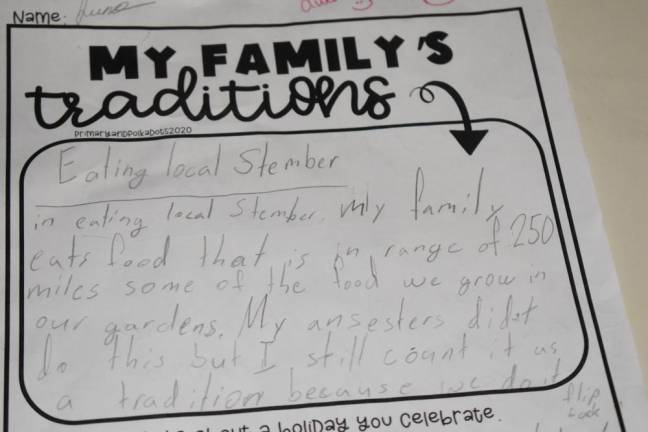 Name:
MY FAMILY'S
traditions
primaryandpolkadots2020
Eating local Stember
in eating local Stember, my family
eats food that is in range of 250
miles some of the food we grow in
our gardens. My ansesters didet
do this but I still count it as
a tradition because we do it
flip
about a holiday you celebrate.